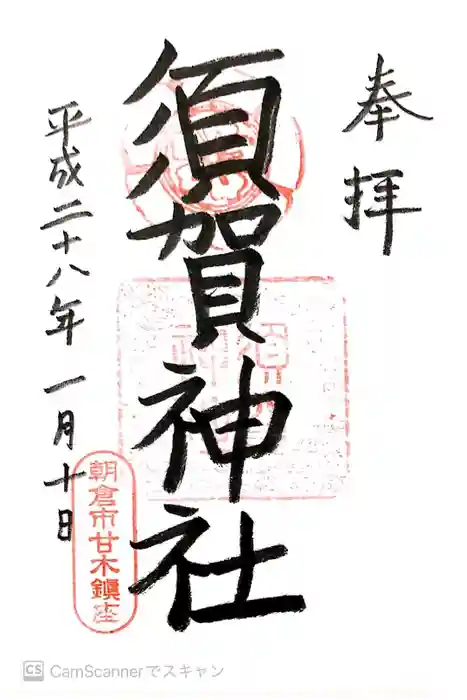 奉拝
須賀神社
平成二十八年 一月十日
朝倉市甘木鎮座
CS CamScannerでスキャン